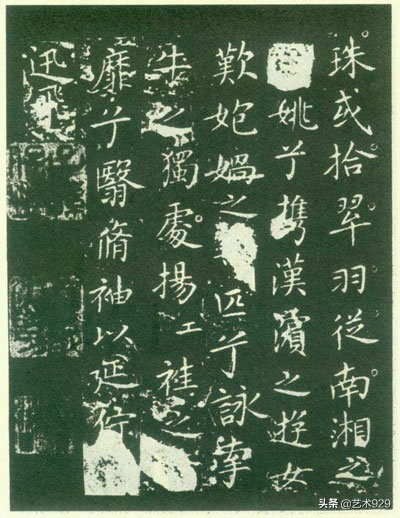 珠或拾翠羽從南湘之
姚兮携漢濱之遊女
歎媧之匹兮詠牽
牛之獨處揚袿之
靡兮翳脩袖以延佇
迅飛
头条 @艺术929